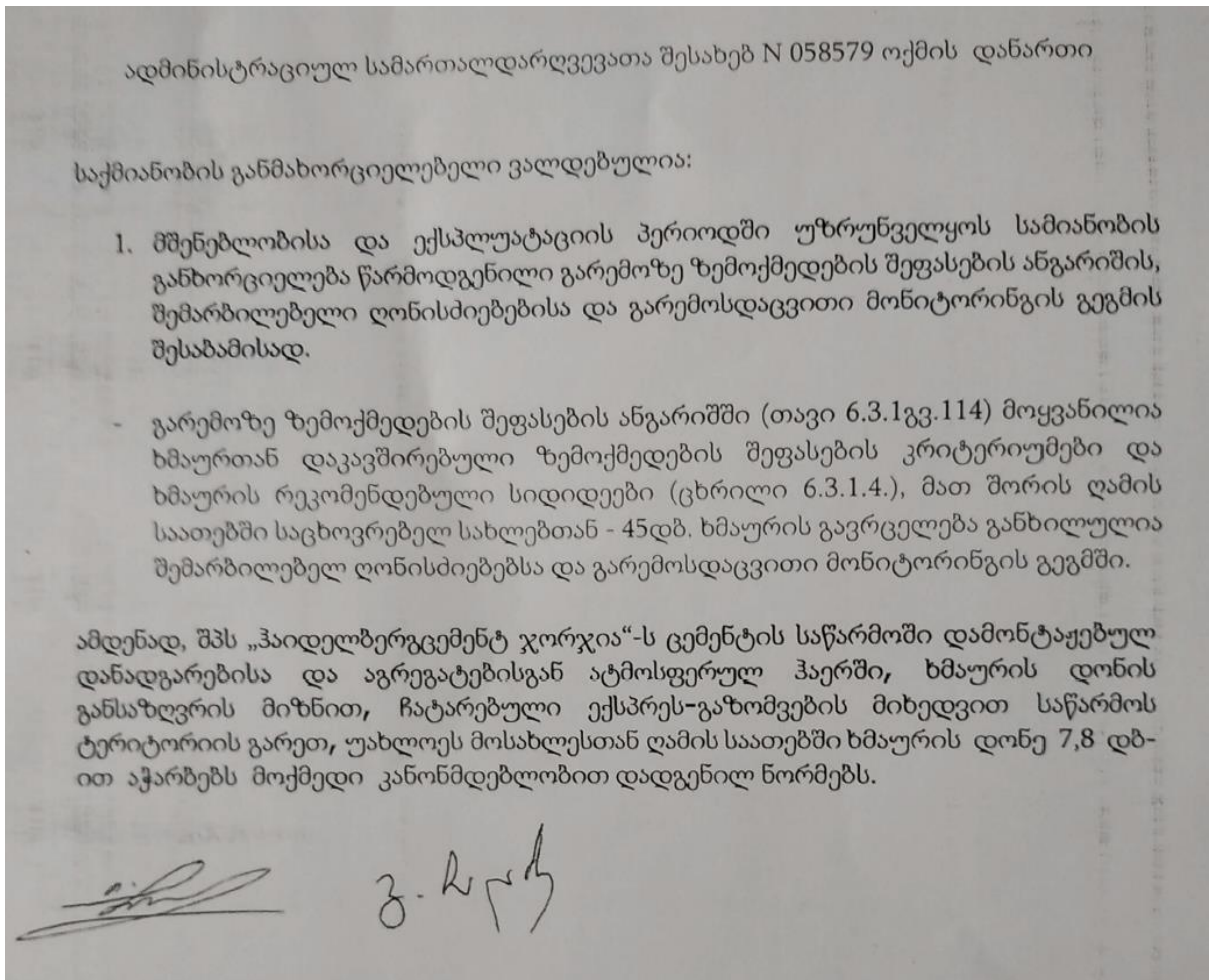 ადმინისტრაციულ სამართალდარღვევათა შესახებ N 058579 ოქმის დანართი
საქმიანობის განმახორციელებელი ვალდებულია:
1. მშენებლობისა და ექსპლუატაციის პერიოდში უზრუნველყოს სამიანობის
განხორციელება წარმოდგენილი გარემოზე ზემოქმედების შეფასების ანგარიშის,
შემარბილებელი ღონისძიებებისა და გარემოსდაცვითი მონიტორინგის გეგმის
შესაბამისად.
- გარემოზე ზემოქმედების შეფასების ანგარიშში (თავი 6.3.1გვ.114) მოყვანილია
ხმაურთან დაკავშირებული ზემოქმედების შეფასების კრიტერიუმები და
ხმაურის რეკომენდებული სიდიდეები (ცხრილი 6.3.1.4.), მათ შორის ღამის
საათებში საცხოვრებელ სახლებთან - 45დბ. ხმაურის გავრცელება განხილულია
შემარბილებელ ღონისძიებებსა და გარემოსდაცვითი მონიტორინგის გეგმში.
ამდენად, შპს „ჰაიდელბერგცემენტ ჯორჯია“-ს ცემენტის საწარმოში დამონტაჟებულ
დანადგარებისა და აგრეგატებისგან ატმოსფერულ ჰაერში, ხმაურის დონის
განსაზღვრის მიზნით, ჩატარებული ექსპრეს-გაზომვების მიხედვით საწარმოს
ტერიტორიის გარეთ, უახლოეს მოსახლესთან ღამის საათებში ხმაურის დონე 7,8 დბ-
ით აჭარბებს მოქმედი კანონმდებლობით დადგენილ ნორმებს.